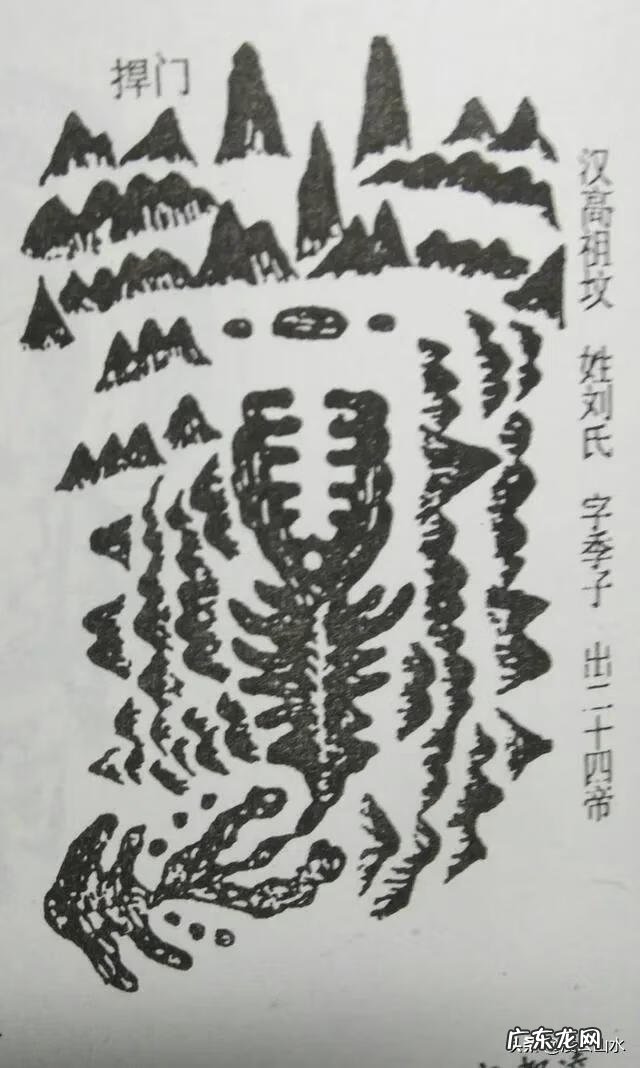 捍门
汉高祖坟 姓刘氏 字季子 出二十四帝
广东龙网